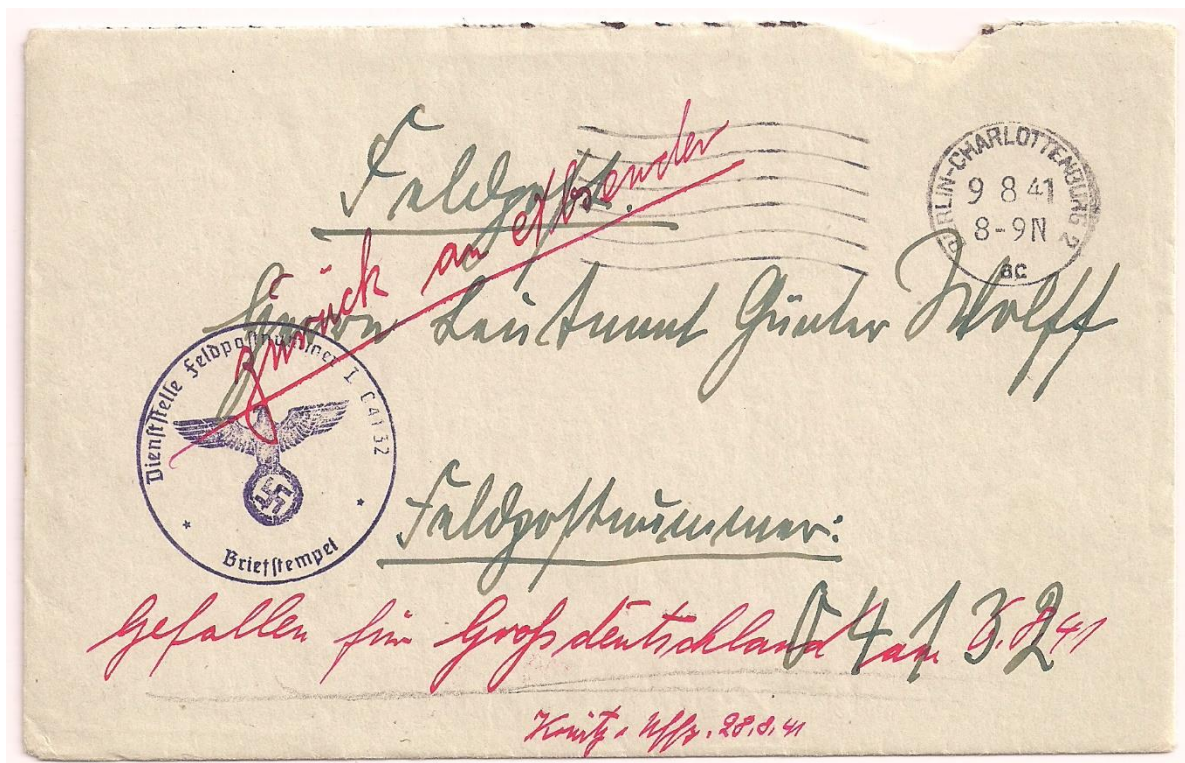 Feldpost.
zurück an Absender
BERLIN-CHARLOTTENBURG 2
9 8 41
8-9N
ac
Herrn Leutnant Günter Wolff
Dienststelle Feldpostnummer L 04132
Briefstempel
Feldpostnummer:
04132
Gefallen für Grossdeutschland am 8.41
Uffz. 28.8.41